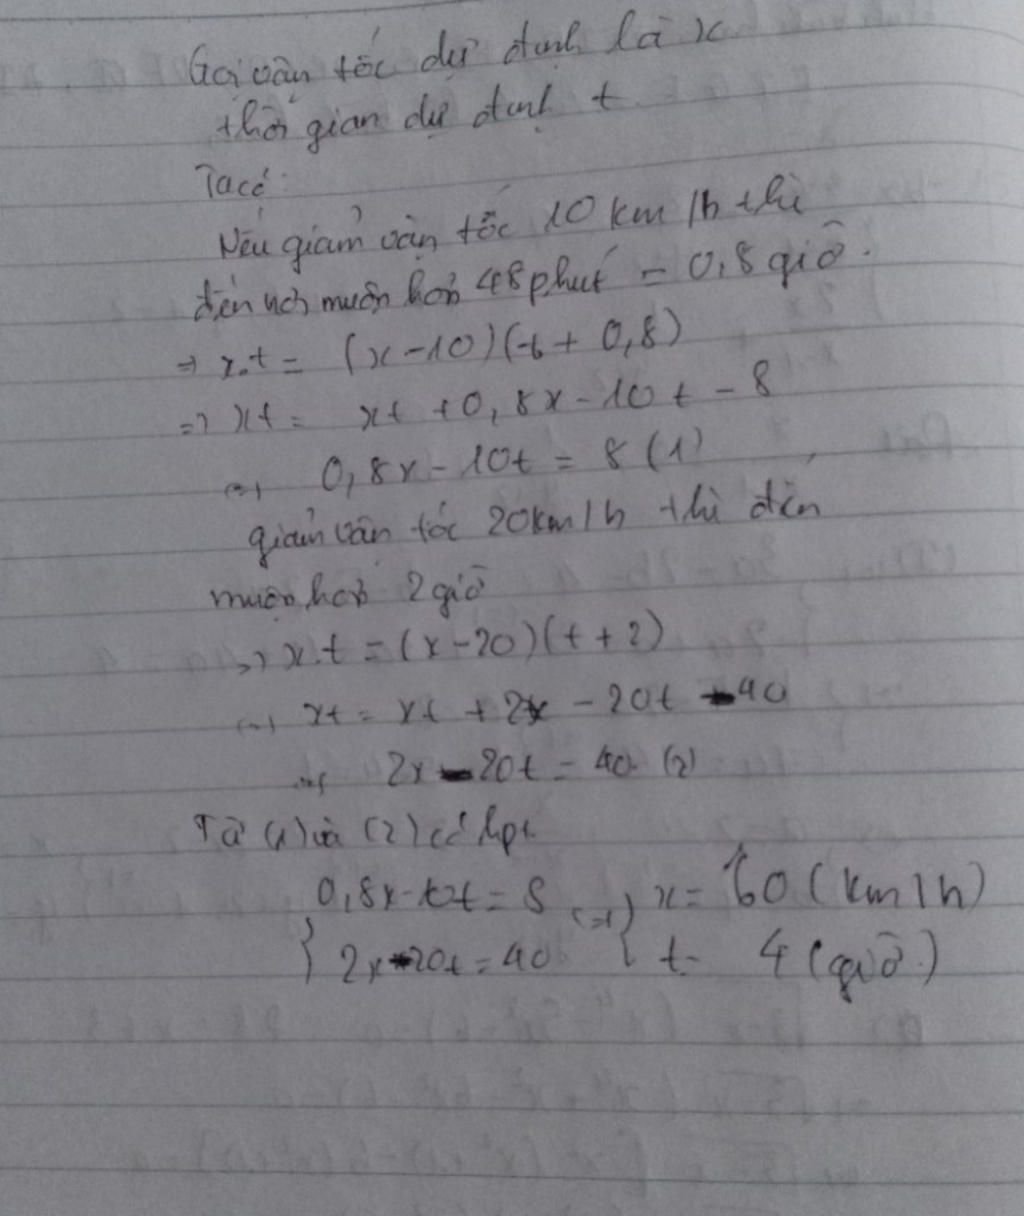 Gọi vận tốc dự định là x
thời gian dự định t
Ta có:
Nếu giảm vận tốc 10 km/h thì
đến nơi muộn hơn 48 phút = 0,8 giờ.
=> x.t = (x-10)(t + 0,8)
=> xt = xt + 0,8x - 10t - 8
<=> 0,8x - 10t = 8 (1)
giảm vận tốc 20km/h thì đến
muộn hơn 2 giờ
=> x.t = (x-20)(t + 2)
<=> xt = xt + 2x - 20t - 40
<=> 2x - 20t = 40 (2)
Từ (1) và (2) có hpt
{ 0,8x - 10t = 8 <=> { x = 60 (km/h)
2x - 20t = 40 t = 4 (giờ)